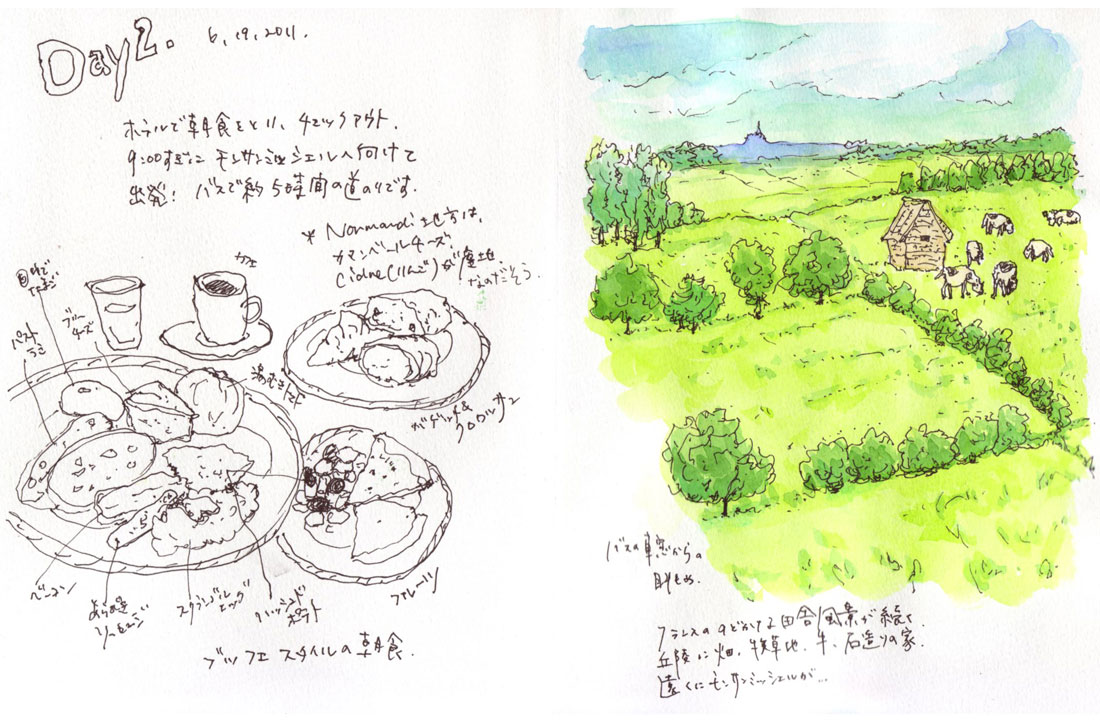 Day 2.
6, 19, 2011.
ホテルで朝食をとり、チェックアウト.
9:00すぎに モンサンミッシェルへ向けて
出発! バスで約5時間の道のりです.
* Normandi 地方は、
カマンベールチーズ.
Cidre(りんご)が産地
なのだそう.
カフェ
ゆで
たまご
ブルー
チーズ
パストラミ
湯むきトマト
バゲット&
クロワッサン
ベーコン
あらびき
ソーセージ
スクランブル
エッグ
ハッシュド
ポテト
フルーツ
ブッフェ スタイルの 朝食.
バスの車窓からの
眺め.
フランスの のどかな 田舎風景が続く.
丘陵に畑、牧草地、牛、石造りの家.
遠くにモンサンミッシェルが...